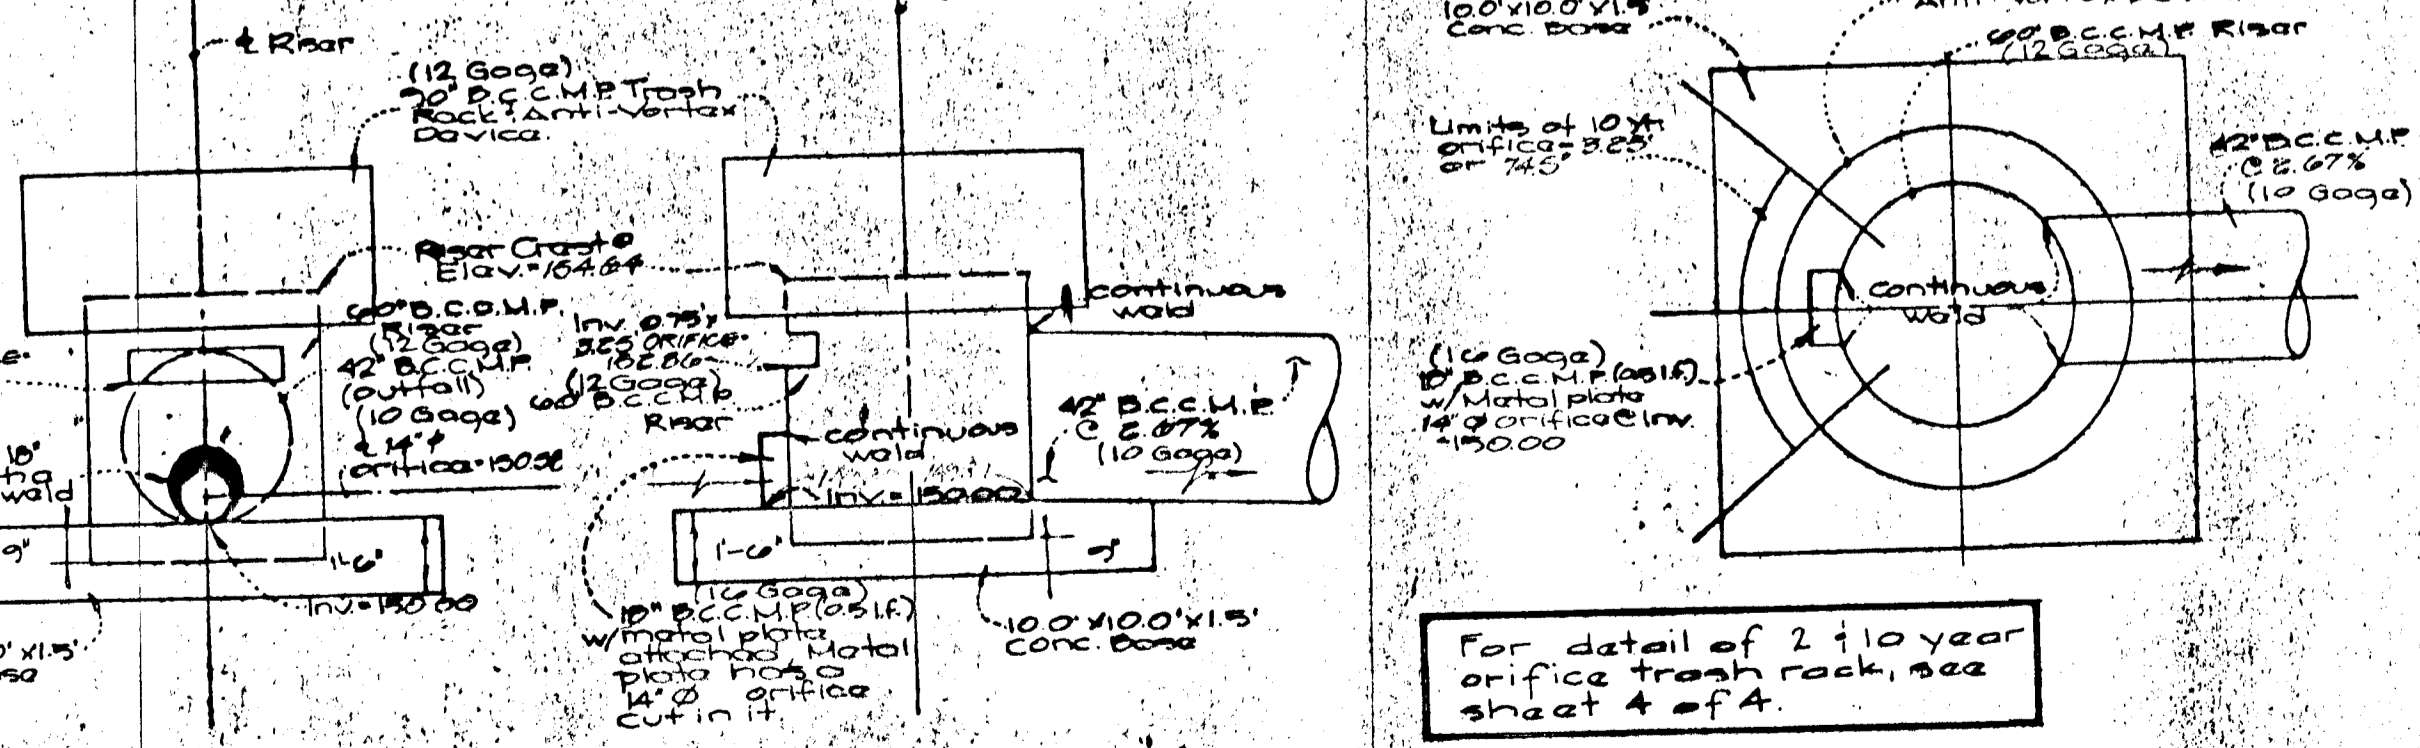 ℄ Riser
(12 Gage)
90" B.C.C.M.P. Trash
Rack & Anti-Vortex
Device.
Riser Crest @
Elev.=154.64
60" B.C.C.M.P.
Riser
(12 Gage)
42" B.C.C.M.P.
(outfall)
(10 Gage)
℄ 14" ϕ
orifice=150.58
18"
weld
9"
1'-6"
Inv.=150.00
' x1.5'
Inv. 0.75'x
3.25 ORIFICE=
152.86
(12 Gage)
60" B.C.C.M.P.
Riser
continuous
weld
continuous
weld
Inv.= 150.00
42" B.C.C.M.P.
@ 2.67%
(10 Gage)
1'-6"
9"
(16 Gage)
18" B.C.C.M.P. (0.5 l.f.)
w/metal plate
attached. Metal
plate has a
14" Ø orifice
cut in it.
10.0' x10.0'x1.5'
Conc. Base
10.0'x10.0'x1.5'
Conc. Base
60" B.C.C.M.P. Riser
(12 Gage)
Limits of 10 yr.
orifice=3.25'
or 74.5°
42" B.C.C.M.P.
@ 2.67%
(10 Gage)
continuous
weld
(16 Gage)
18" B.C.C.M.P. (0.5 l.f.)
w/Metal plate
14" Ø orifice @ Inv.
=150.00
For detail of 2 & 10 year
orifice trash rack, see
sheet 4 of 4.